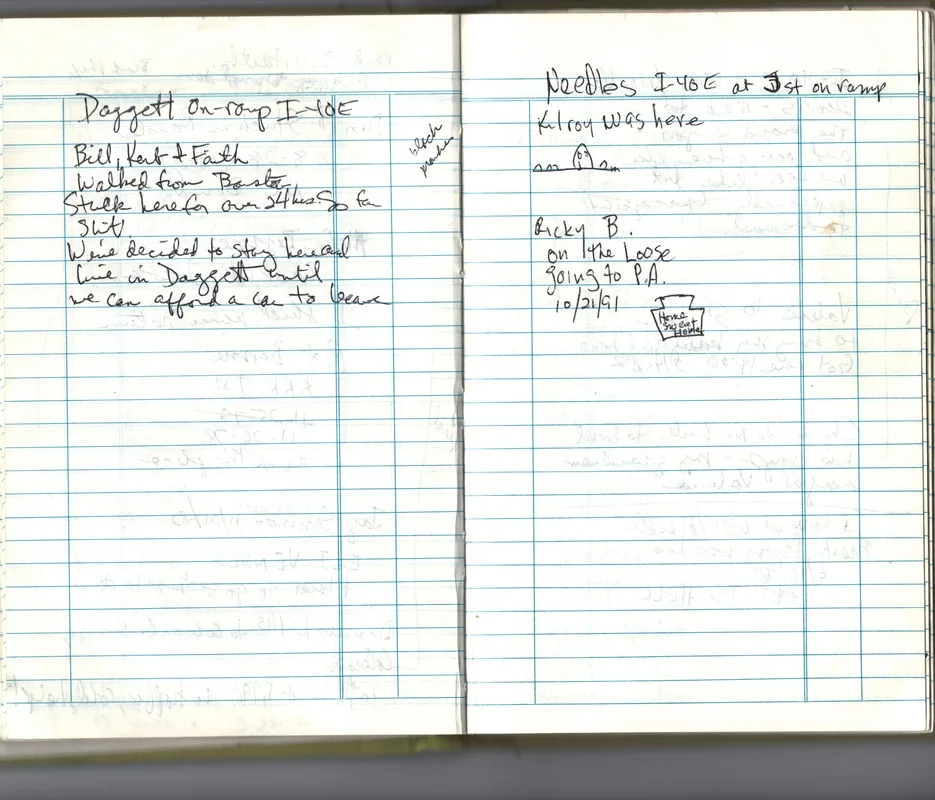 Daggett On-ramp I-40E
Bill, Kent + Faith
Walked from Barstow
Stuck here for over 24hrs So far
Shit!
We've decided to stay here and
live in Daggett until
we can afford a car to leave
black
marker
Needles I-40E at J st on ramp
Kilroy was here
Ricky B.
on the Loose
going to P.A.
10/21/91
Home
Sweet
Home